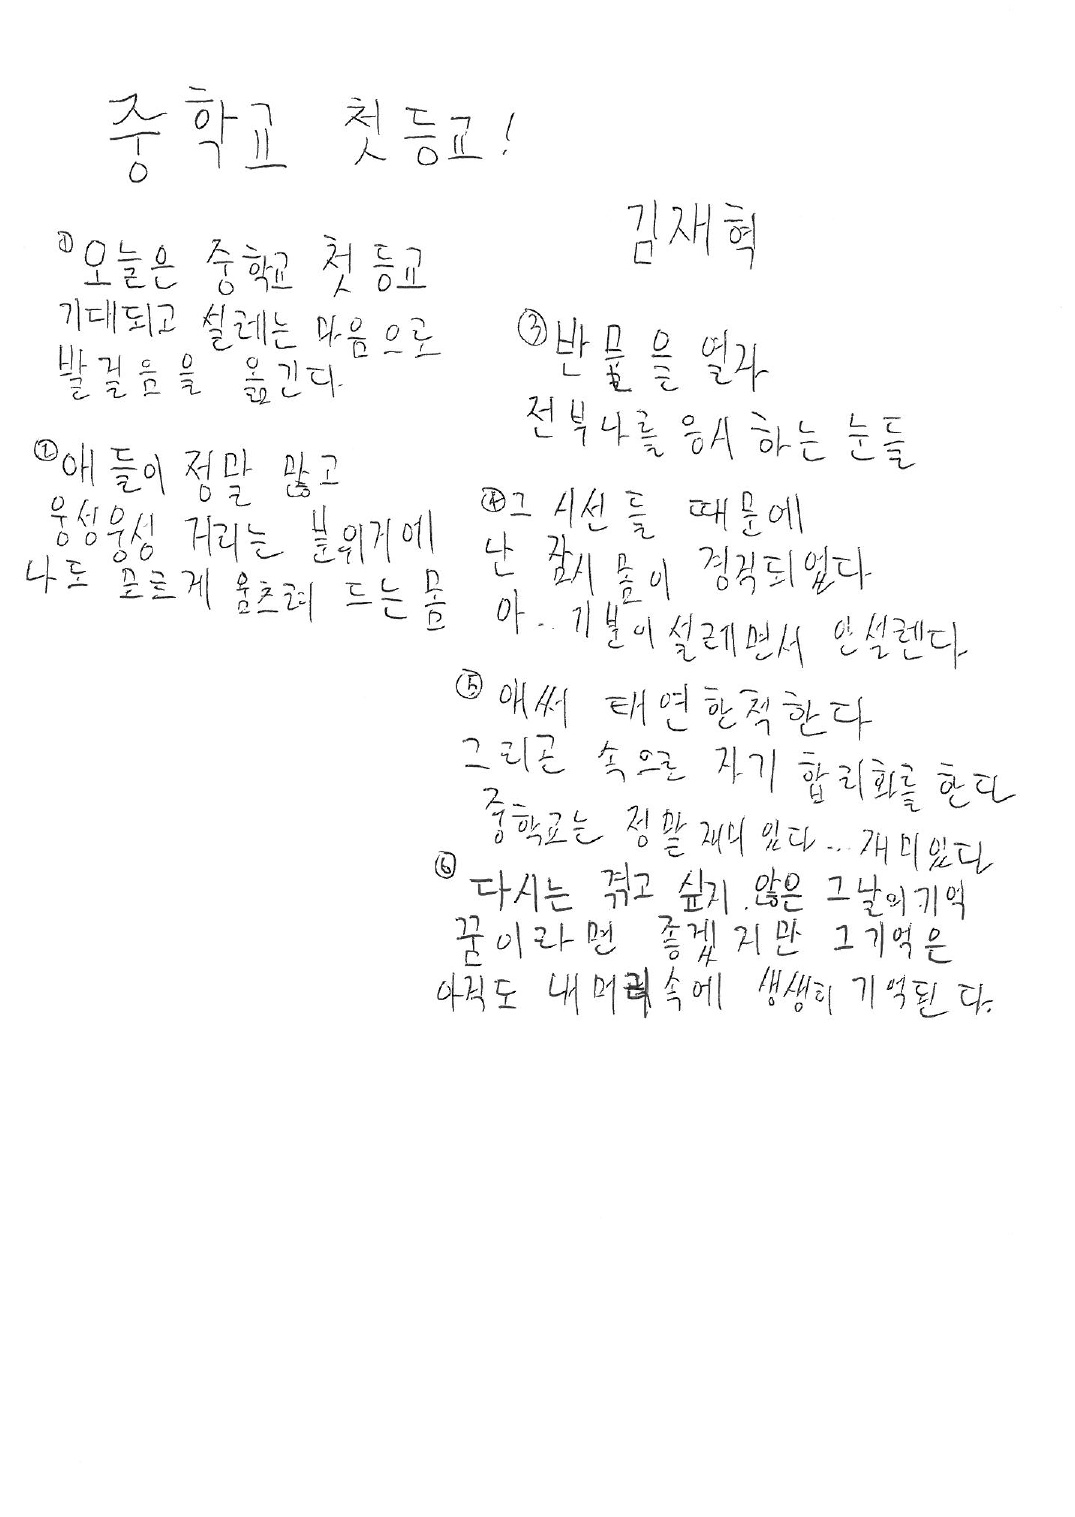 중학교 첫등교!
김재혁
① 오늘은 중학교 첫 등교
기대되고 설레는 마음으로
발걸음을 옮긴다.
② 애들이 정말 많고
웅성웅성 거리는 분위기에
나도 모르게 움츠려 드는 몸
③ 반 문을 열자
전부 나를 응시 하는 눈들
④ 그 시선들 때문에
난 잠시 몸이 경직되었다
아.. 기분이 설레면서 안설렌다
⑤ 애써 태연한척한다
그리곤 속으로 자기 합리화를 한다
중학교는 정말 재미있다... 재미있다
⑥ 다시는 겪고 싶지 않은 그날의 기억
꿈이라면 좋겠지만 그기억은
아직도 내 머리속에 생생히 기억된다.